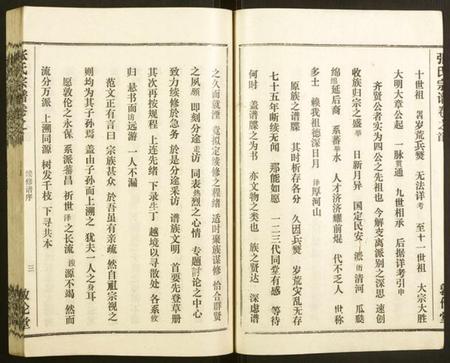 張氏宗譜卷之首
十世祖 為岁荒兵燹 无法详考 至十一世祖 大宗大胜
大明大章公起 一脉貫通 九世相承 后据详考引申
齐贤公者实为四公之先祖也 今解支离派别之深思 速创
收族归宗之盛举 日新月异 国定民安 派衍清河 瓜瓞
绵绵延后裔 系番華水 人才济济耀前焜 代不乏人 世称
多士 赖我祖德深日月 泽厚河山
原族之谱牒 其时析存各分 久因兵燹 岁荒灾乱无存
七十五年时断续无闻 那能如愿 一二三代同堂有感 等待
何时 盖谱牒之为书 亦文物之类也 族之贤达 深虑谱
之久而就湮 竟拟定续修之程绪 适时聚族谋修 恰合群贤
之夙愿 即刻分途走访 同表热烈之心情 专题討论之中心
致力续修於急务 於是分途采访 谱族文明 首要先登草册
其次再按规程 上连先绪 下录生丁 越境以寻散处 各系攸
归 悬书面 远游 一人不漏
范文正有言曰 宗族甚众 於吾虽有亲疏 然自祖宗视之
则均为其子孙焉 盖由子孙而上溯之 犹夫一人之身耳
愿敦伦之永保 系派蕃昌 祈世泽之长流 源不竭 然而
流分万派 上溯同源 树发千枝 下寻共本
张氏宗譜卷之首
续修谱序
三
敦伦堂